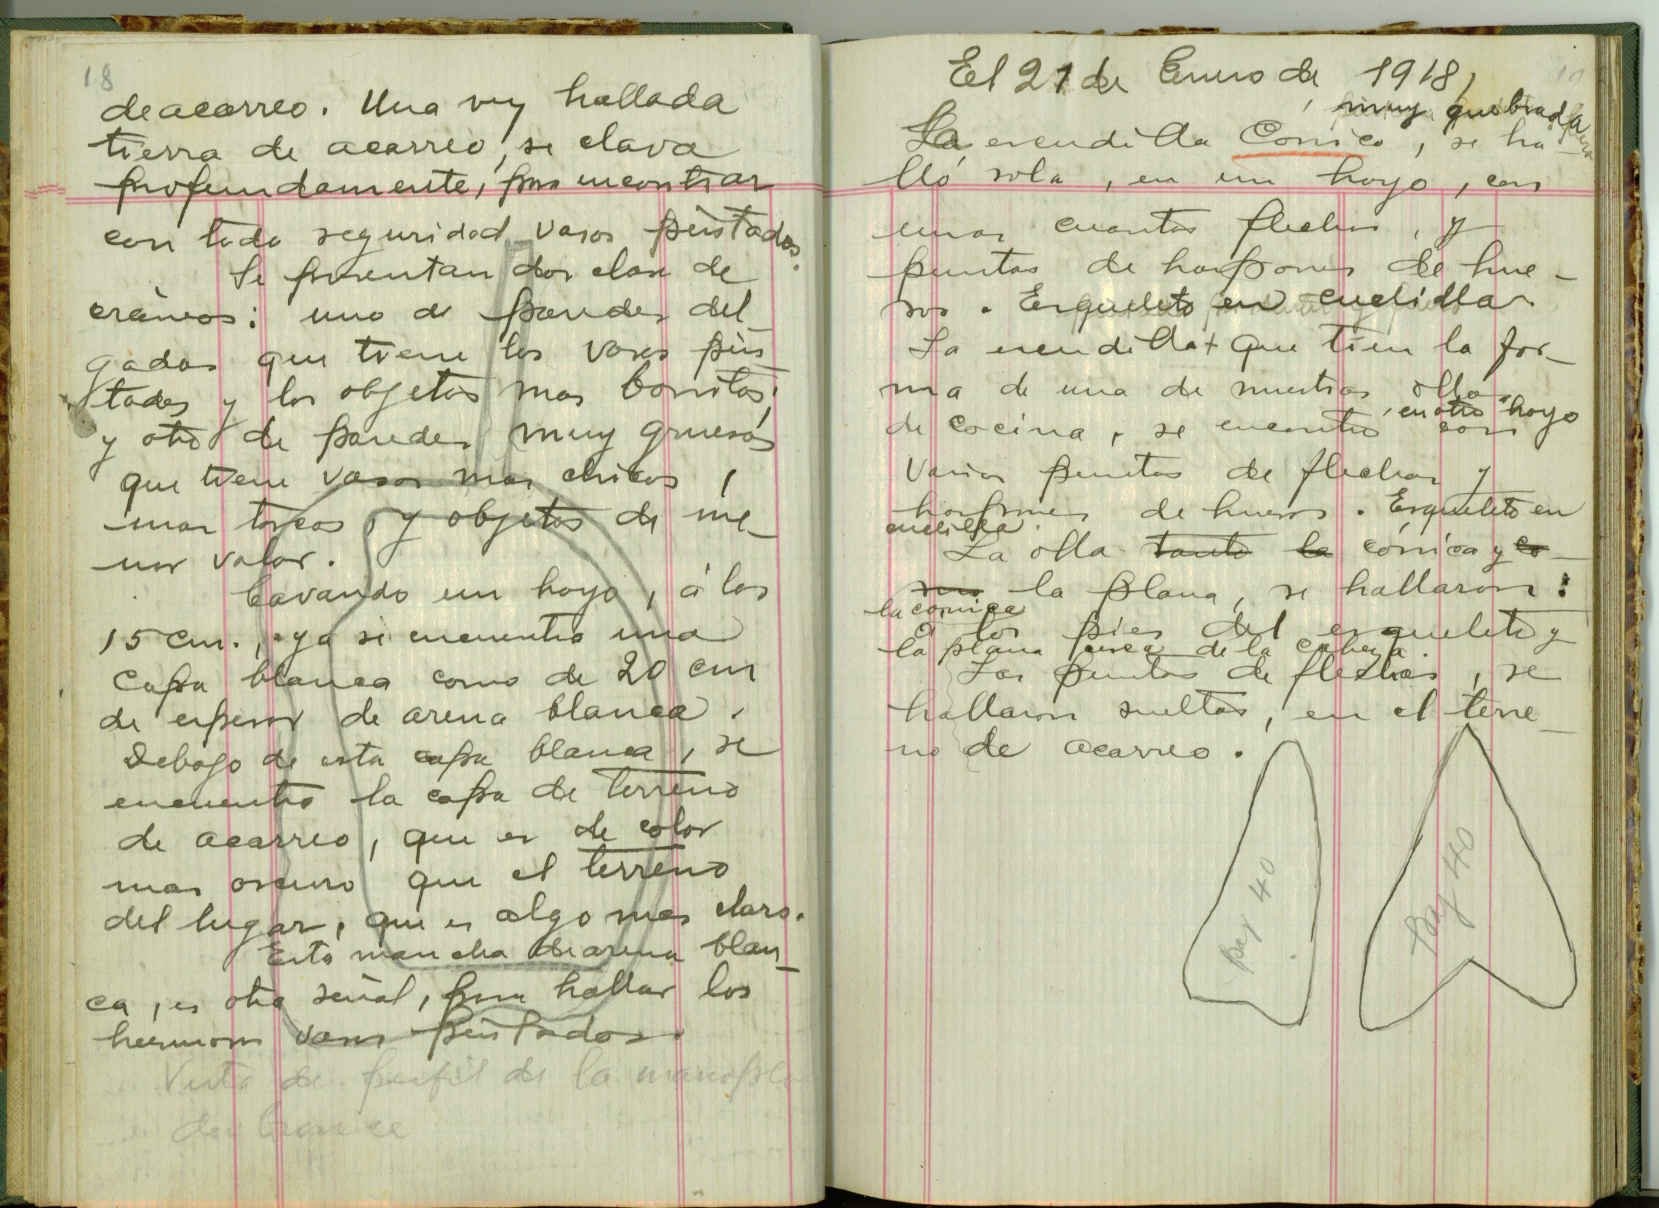 18
de acarreo. Una vez hallada
tierra de acarreo, se clava
profundamente, para encontrar
con toda seguridad vasos pintados.
Se presentan dos clase de
cráneos: uno de paredes del
gadas que tiene los vasos pin
tados y los objetos mas bonitos;
y otro de paredes muy gruesas
que tiene vasos mas chicos,
mas toscos, y objetos de me-
nor valor.
Cavando un hoyo, á los
15 cm., ya se encuentra una
capa blanca como de 20 cm
de espesor de arena blanca.
Debajo de esta capa blanca, se
encuentra la capa de terreno
de acarreo, que es de color
mas oscuro que el terreno
del lugar, que es algo mas claro.
Esta mancha de arena blan-
ca, es otra señal, para hallar los
hermosos vasos pintados.
Vista de perfil de la manopla
de bronce
El 21 de Enero de 1918,
, muy quebrada
La escudilla Conica, se ha-
lló sola, en un hoyo, con
unas cuantas flechas, y
puntas de harpones de hue-
sos. Esqueleto en cuclillas.
La escudilla + que tiene la for-
ma de una de nuestras ollas
, en otro hoyo
de cocina, se encontró con
varias puntas de flechas y
harpones de huesos. Esqueleto en
cuclilla.
La olla tanto la cónica y co-
mo la plana, se hallaron:
la conica
a los pies del esqueleto y
la plana cerca de la cabeza.
Las puntas de flechas, se
hallaron sueltas, en el terre-
no de acarreo.
pag 40
pag 40